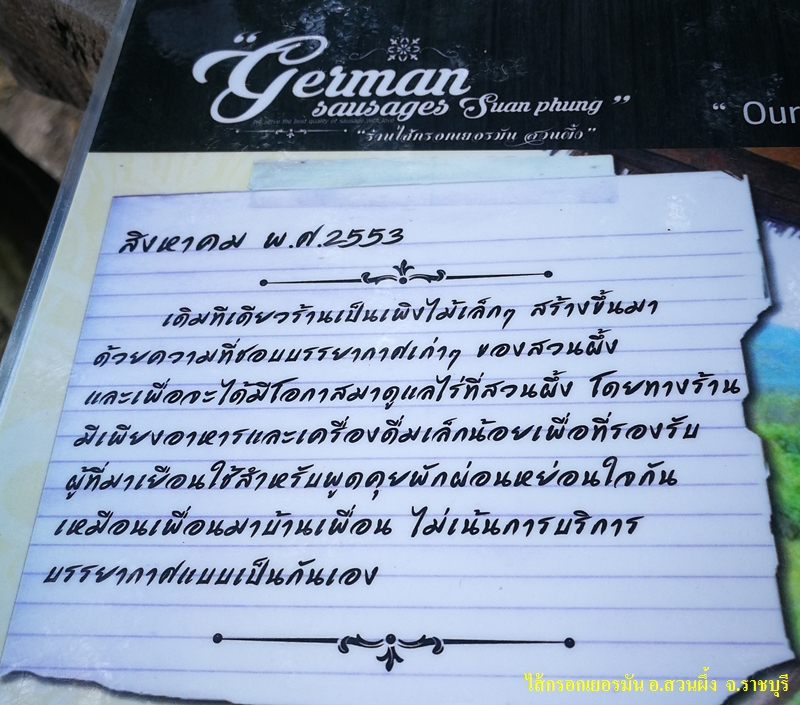 "German
sausages Suan phung"
We serve the best quality of sausage with love
"ร้านไส้กรอกเยอรมัน สวนผึ้ง"
" Our
สิงหาคม พ.ศ.2553
เดิมทีเดียวร้านเป็นเพิงไม้เล็กๆ สร้างขึ้นมา
ด้วยความที่ชอบบรรยากาศเก่าๆ ของสวนผึ้ง
และเพื่อจะได้มีโอกาสมาดูแลไร่ที่สวนผึ้ง โดยทางร้าน
มีเพียงอาหารและเครื่องดื่มเล็กน้อยเพื่อที่รองรับ
ผู้ที่มาเยือนใช้สำหรับพูดคุยพักผ่อนหย่อนใจกัน
เหมือนเพื่อนมาบ้านเพื่อน ไม่เน้นการบริการ
บรรยากาศแบบเป็นกันเอง
ไส้กรอกเยอรมัน อ.สวนผึ้ง จ.ราชบุรี